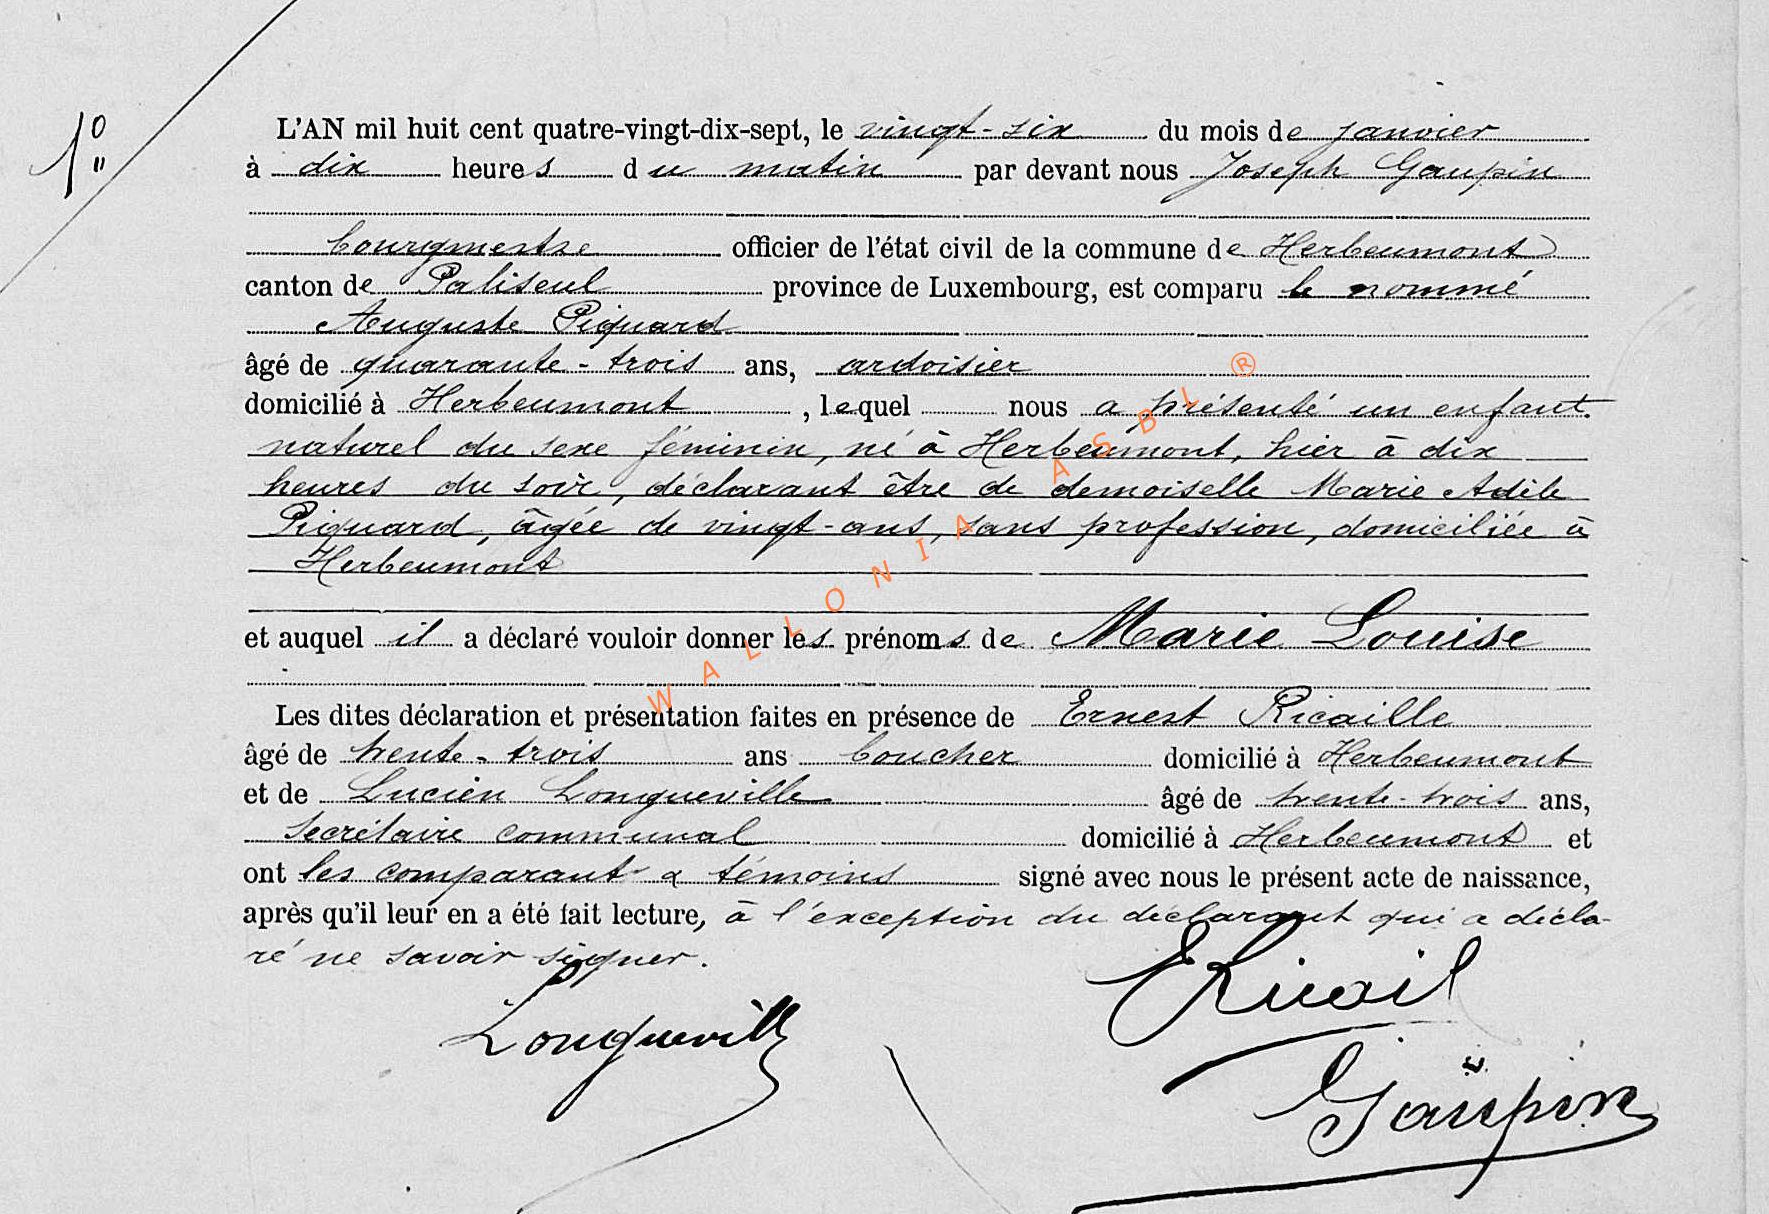 1°
"
L'AN mil huit cent quatre-vingt-dix-sept, le vingt-six du mois de janvier
à dix heures du matin par devant nous Joseph Gaupin
bourgmestre officier de l'état civil de la commune de Herbeumont
canton de Paliseul province de Luxembourg, est comparu le nommé
Auguste Piquard
âgé de quarante-trois ans, ardoisier
domicilié à Herbeumont, lequel nous a présenté un enfant
naturel du sexe féminin, né à Herbeumont, hier à dix
heures du soir, déclarant être de demoiselle Marie Adèle
Piquard, âgée de vingt-ans, sans profession, domiciliée à
Herbeumont
et auquel il a déclaré vouloir donner les prénoms de Marie Louise
Les dites déclaration et présentation faites en présence de Ernest Ricaille
âgé de trente-trois ans boucher domicilié à Herbeumont
et de Lucien Longueville âgé de trente-trois ans,
secrétaire communal domicilié à Herbeumont et
ont les comparant & témoins signé avec nous le présent acte de naissance,
après qu'il leur en a été fait lecture, à l'exception du déclarant qui a décla-
ré ne savoir signer.
Longueville
ERicail
Gaupin
WALLONIA ASBL ®